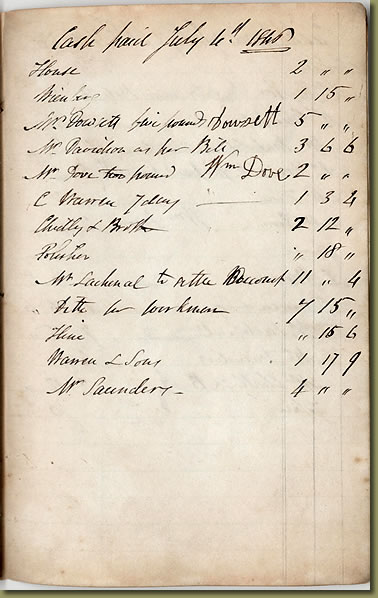 Cash paid July 4th 1846
House 2 " "
1 15 "
Mr Dowsett five pounds Dowsett 5 " "
Mr Davidson as per Bill 3 6 6
Mr Dove two pound Wm Dove 2 " "
C Warren 7 days 1 3 4
Chidley & Broth 2 12 "
Polisher " 18 "
Mr Lachenal to settle account 11 " 4
" Ditto for workman 7 15 "
Hine " 15 6
Warren & Sons 1 17 9
Mr Saunders 4 " "